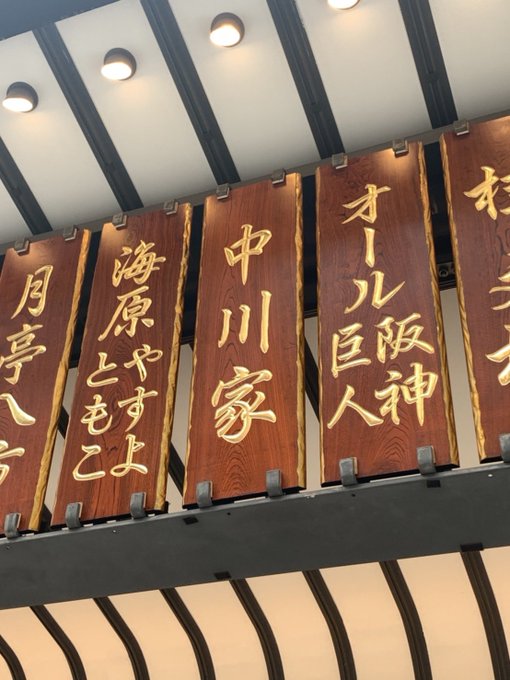 オール
阪神
巨人
中川家
海原
やすよ
ともこ
月亭八方